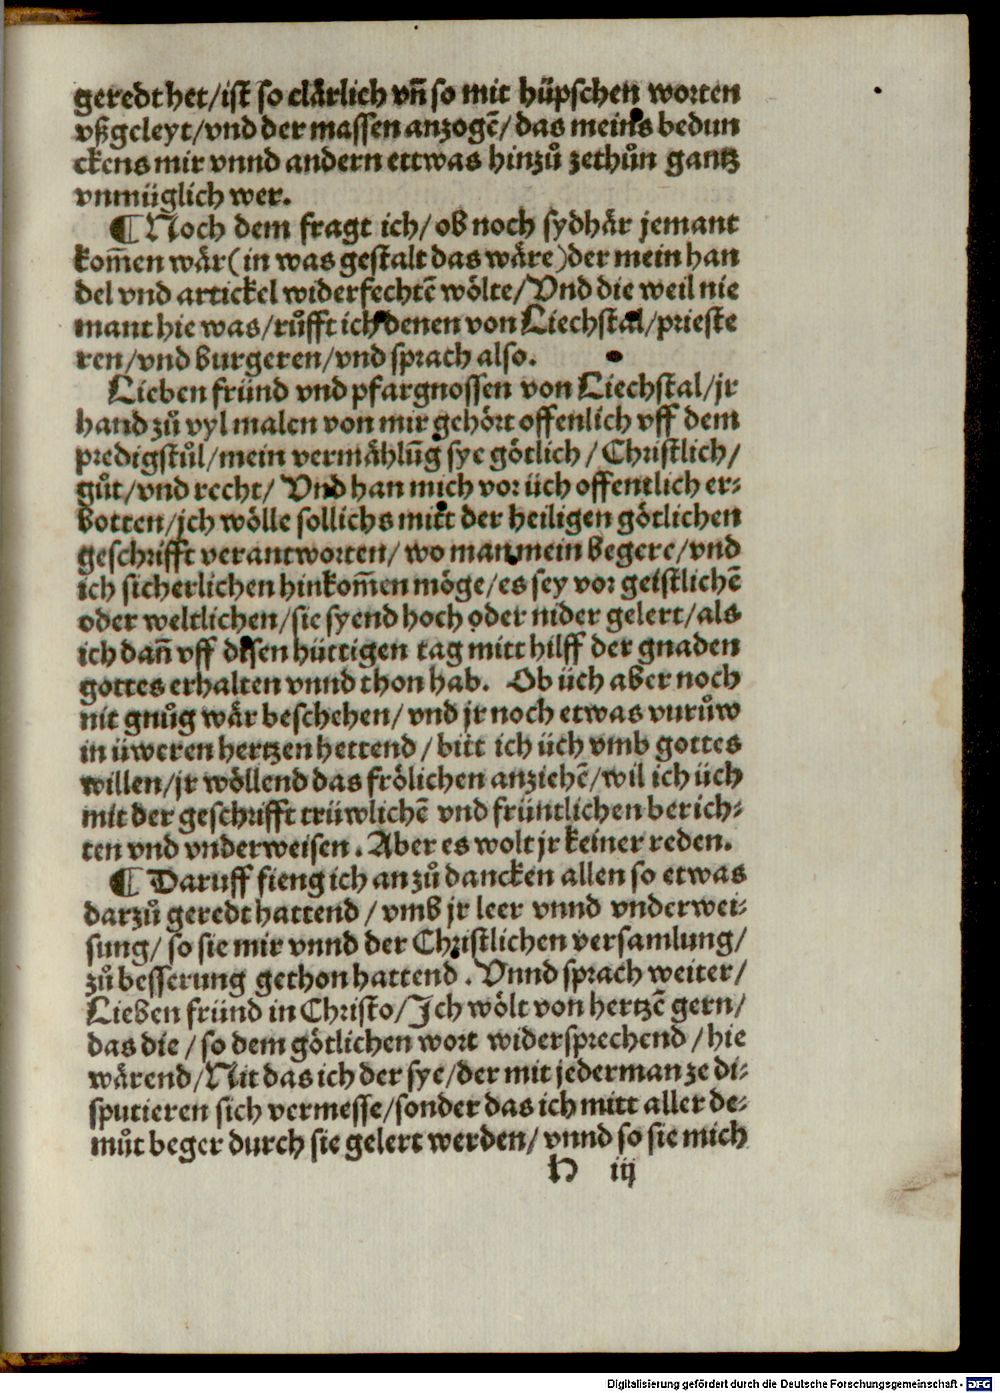 geredt het/ist so clårlich vn̄ so mit hüpschen worten
vßgeleyt/vnd der massen anzogē/das meins bedun
ckens mir vnnd andern ettwas hinzů zethůn gantz
vnmüglich wer.
¶ Noch dem fragt ich/ob noch sydhår jemant
kom̄en wår(in was gestalt das wåre)der mein han
del vnd artickel widerfechtē wölte/Vnd die weil nie
mant hie was/růfft ich denen von Liechstal/prieste
ren/vnd burgeren/vnd sprach also.
Lieben fründ vnd pfargnossen von Liechstal/jr
hand zů vyl malen von mir gehört offenlich vff dem
predigstůl/mein vermåhlūg sye götlich/Christlich/
gůt/vnd recht/ Vnd han mich vor üch offentlich er⸗
botten/ich wölle sollichs mitt der heiligen götlichen
geschrifft verantworten/ wo man mein begere/vnd
ich sicherlichen hinkom̄en möge/es sey vor geistlichē
oder weltlichen/sie syend hoch oder nider gelert/als
ich dan̄ vff disen hüttigen tag mitt hilff der gnaden
gottes erhalten vnnd thon hab. Ob üch aber noch
nit gnůg wår beschehen/vnd jr noch etwas vnrůw
in üweren hertzen hettend/bitt ich üch vmb gottes
willen/jr wöllend das frölichen anziehē/wil ich üch
mit der geschrifft trüwlichē vnd früntlichen berich⸗
ten vnd vnderweisen. Aber es wolt jr keiner reden.
¶ Daruff fieng ich an zů dancken allen so etwas
darzů geredt hattend/vmb jr leer vnnd vnderwei⸗
sung/so sie mir vnnd der Christlichen versamlung/
zů besserung gethon hattend. Vnnd sprach weiter/
Lieben fründ in Christo/Ich wölt von hertzē gern/
das die/so dem götlichen wort widersprechend/hie
wårend/Nit das ich der sye/der mit jederman ze di⸗
sputieren sich vermesse/sonder das ich mitt aller de⸗
můt beger durch sie gelert werden/vnnd so sie mich
H iij
Digitalisierung gefördert durch die Deutsche Forschungsgemeinschaft - DFG